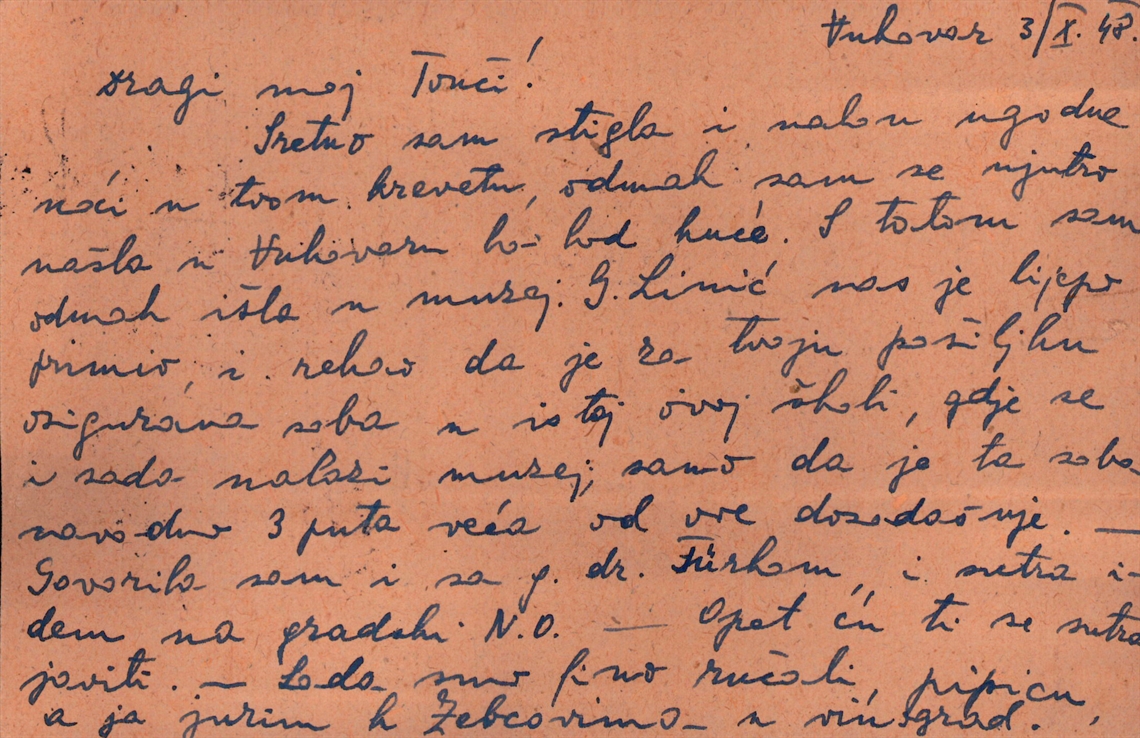 Vukovar 3/X. 48.
Dragi moj Tonči!
Sretno sam stigla i nakon ugodne
noći u tvom krevetu, odmah sam se ujutro
našla u Vukovaru kod kuće. S tatom sam
odmah išla u muzej. G. Linić nas je lijepo
primio, i rekao da je za tvoju pošiljku
osigurana soba u istoj ovoj školi, gdje se
i sada nalazi muzej, samo da je ta soba
navodno 3 puta veća od ove dosadašnje. —
Govorila sam i sa g. dr. Fürkom, i sutra i-
dem na gradski N.O. — Opet ću ti se sutra
javiti. — Sada smo fino ručali, pipicu,
a ja jurim k Žebčovima u vinograd.